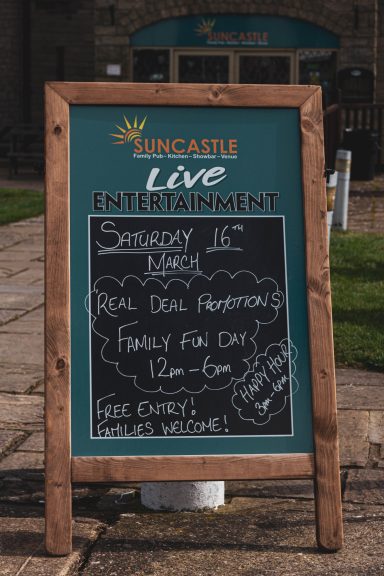 SUNCASTLE
SUNCASTLE
Family Pub – Kitchen – Showbar – Venue
Live
ENTERTAINMENT
SATURDAY 16TH
MARCH
REAL DEAL PROMOTIONS
FAMILY FUN DAY
12PM – 6PM
HAPPY HOUR
3PM – 6PM
FREE ENTRY!
FAMILIES WELCOME!